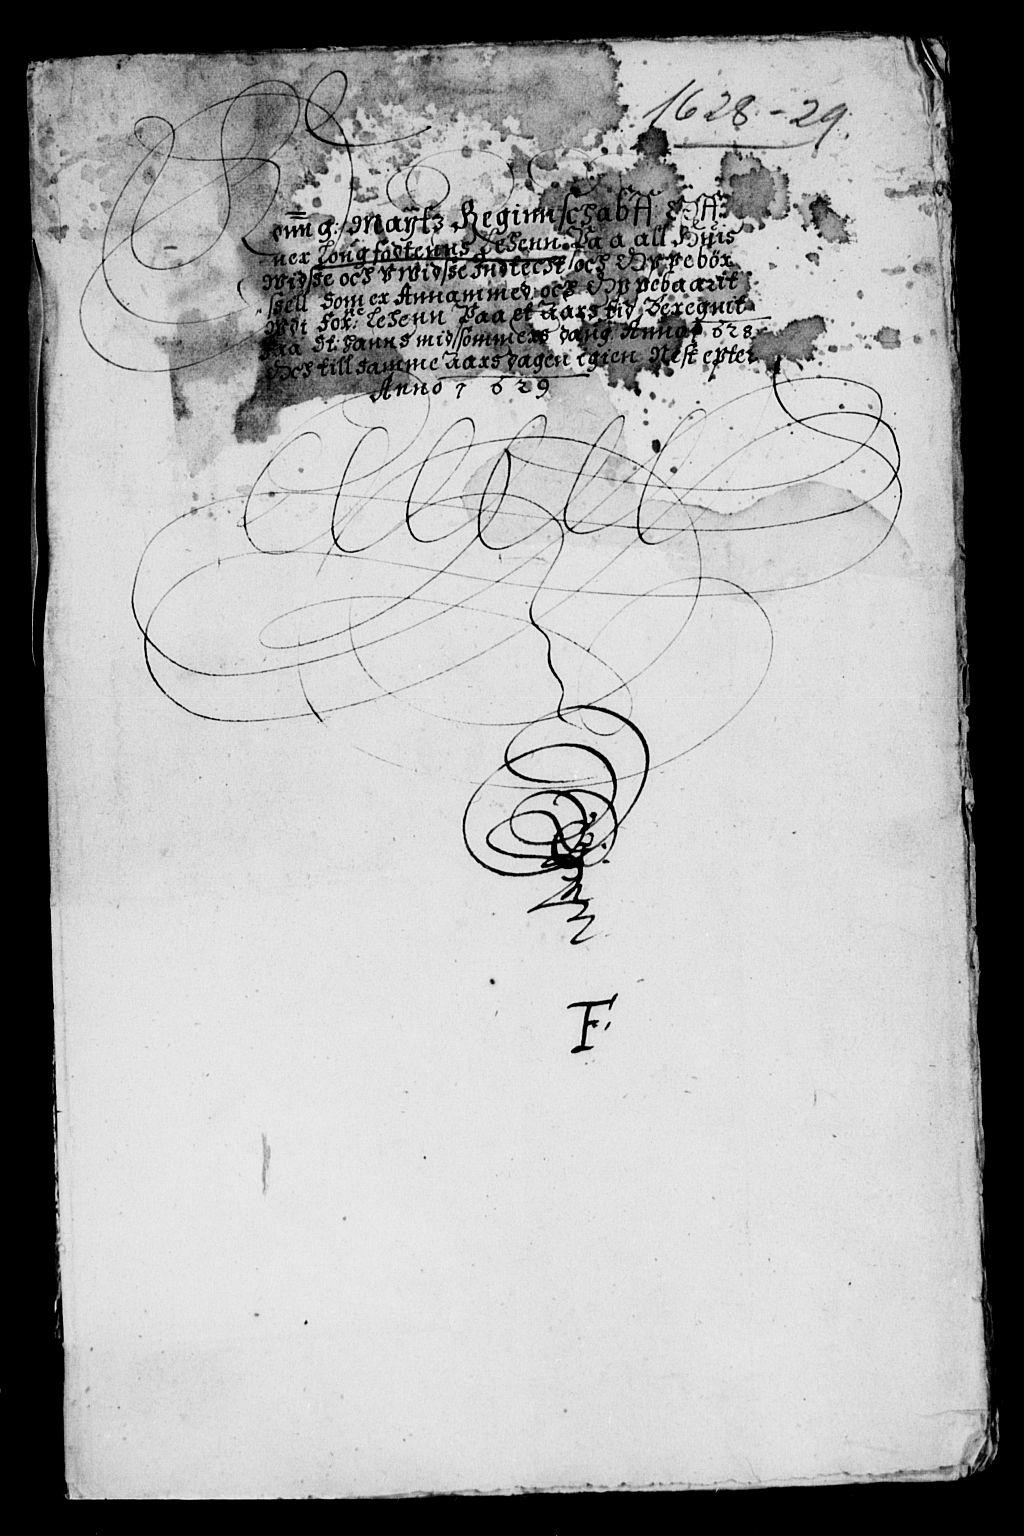 1628-29.
Konn: g: Maÿtz Reginnschabff Off
uer Longfodtenns Lehenn. Paa all Huis
widsse och Vwidsse Indtecht / och Oppebör
ssell som er Annammed och Oppebaarit
wdi for: Lehenn Paa et Aars tid Beregnit
Paa St: Hanns midssommers dang Anno 1628
Och till samme Aars dagen igien Nest epter
Anno 1629
F.